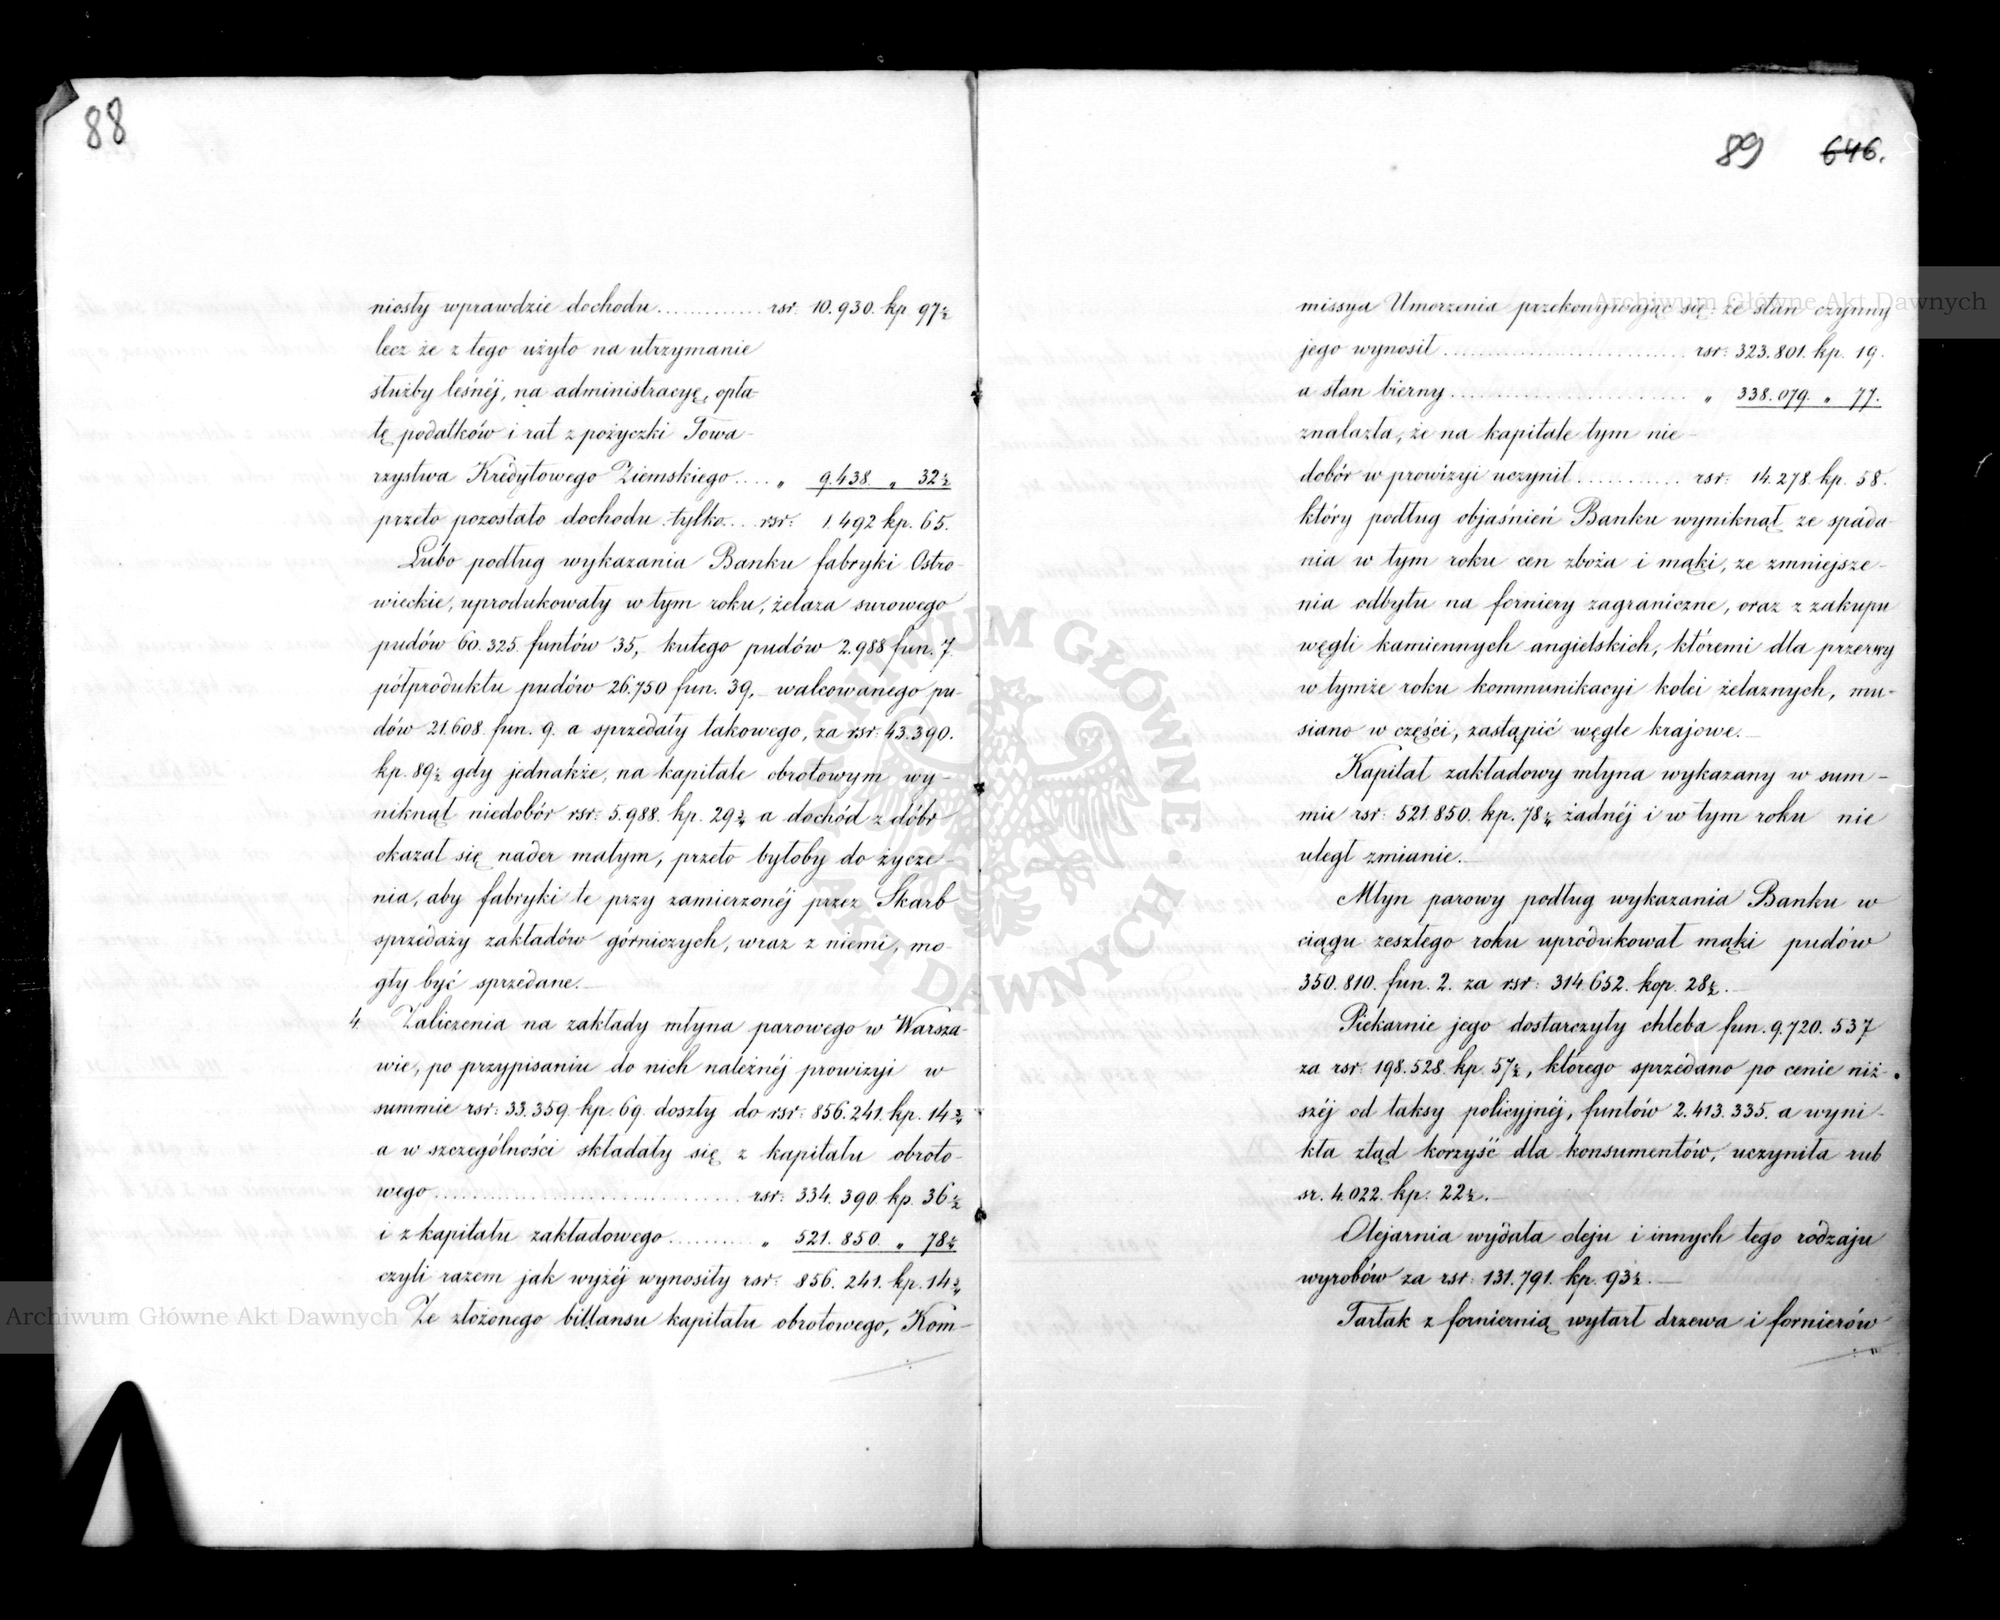 88
niosły wprawdzie dochodu............. rsr: 10.930. kp 97½
lecz że z tego użyto na utrzymanie
służby leśnéj, na administracyę, opła-
tę podatków i rat z pożyczki Towa-
rzystwa Kredytowego Ziemskiego.... „ 9.438. „ 32½
przeto pozostało dochodu tylko... rsr: 1.492 kp. 65.
Lubo podług wykazania Banku fabryki Ostro-
wieckie, uprodukowały w tym roku, żelaza surowego
pudów 60.325. funtów 35, kutego pudów 2.988 fun. 7.
półproduktu pudów 26.750 fun. 39,- walcowanego pu-
dów 21.608. fun. 9. a sprzedały takowego, za rsr: 43.390.
kp. 89½ gdy jednakże, na kapitale obrotowym wy-
niknął niedobór rsr: 5.988. kp. 29¾ a dochód z dóbr
okazał się nader małym, przeto byłoby do życze-
nia, aby fabryki te przy zamierzonéj przez Skarb
sprzedaży zakładów górniczych, wraz z niemi, mo-
gły być sprzedane.-
4. Zaliczenia na zakłady młyna parowego w Warsza-
wie, po przypisaniu do nich należnéj prowizyi w
summie rsr: 33.359. kp. 69. doszły do rsr: 856.241. kp. 14¾
a w szczególności składały się z kapitału obroto-
wego................................ rsr: 334.390. kp. 36½
i z kapitału zakładowego.......... „ 521.850. „ 78¼
czyli razem jak wyżéj wynosiły rsr: 856.241. kp. 14¾
Ze złożonego billansu kapitału obrotowego, Kom-
89 646.
missya Umorzenia przekonywając się: że stan czynny
jego wynosił............................ rsr: 323.801. kp. 19.
a stan bierny............................ „ 338.079. „ 77.
znalazła, że na kapitale tym nie-
dobór w prowizyi uczynił........... rsr: 14.278. kp. 58.
który podług objaśnień Banku wyniknął ze spada-
nia w tym roku cen zboża i mąki, ze zmniejsze-
nia odbytu na forniery zagraniczne, oraz z zakupu
węgli kamiennych angielskich, któremi dla przerwy
w tymże roku kommunikacyi kolei żelaznych, mu-
siano w części, zastąpić węgle krajowe.-
Kapitał zakładowy młyna wykazany w sum-
mie rsr: 521.850. kp. 78¼ żadnéj i w tym roku nie
uległ zmianie.-
Młyn parowy podług wykazania Banku w
ciągu zeszłego roku uprodukował mąki pudów
350.810. fun. 2. za rsr: 314.652. kop. 28½.-
Piekarnie jego dostarczyły chleba fun. 9.720.537
za rsr: 198.528. kp. 57½, którego sprzedano po cenie niż-
széj od taksy policyjnéj, funtów 2.413.335. a wyni-
kła ztąd korzyść dla konsumentów, uczyniła rub
sr. 4.022. kp. 22½.-
Olejarnia wydała oleju i innych tego rodzaju
wyrobów za rsr: 131.791. kp. 93½.-
Tartak z forniernią wytarł drzewa i fornierów
Archiwum Główne Akt Dawnych
Archiwum Główne Akt Dawnych
ARCHIWUM GŁÓWNE • AKT DAWNYCH •